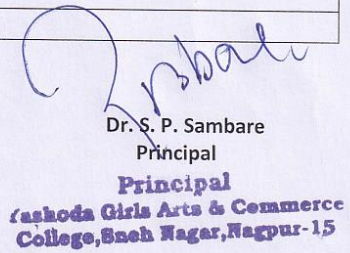 Dr. S. P. Sambare
Principal
Principal
Yashoda Girls Arts & Commerce
College, Sneh Nagar, Nagpur-15